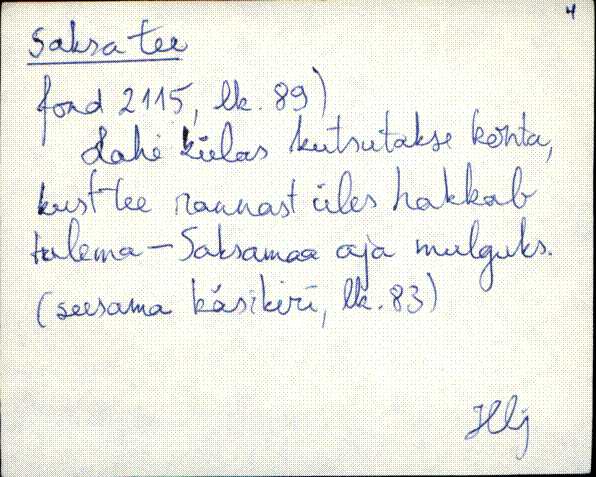 4
Saksa tee
fond 2115, lk. 89)
Lahe külas kutsutakse kohta,
kust tee rannast üles hakkab
tulema - Saksamaa aja mulguks.
(seesama käsikiri, lk. 83)